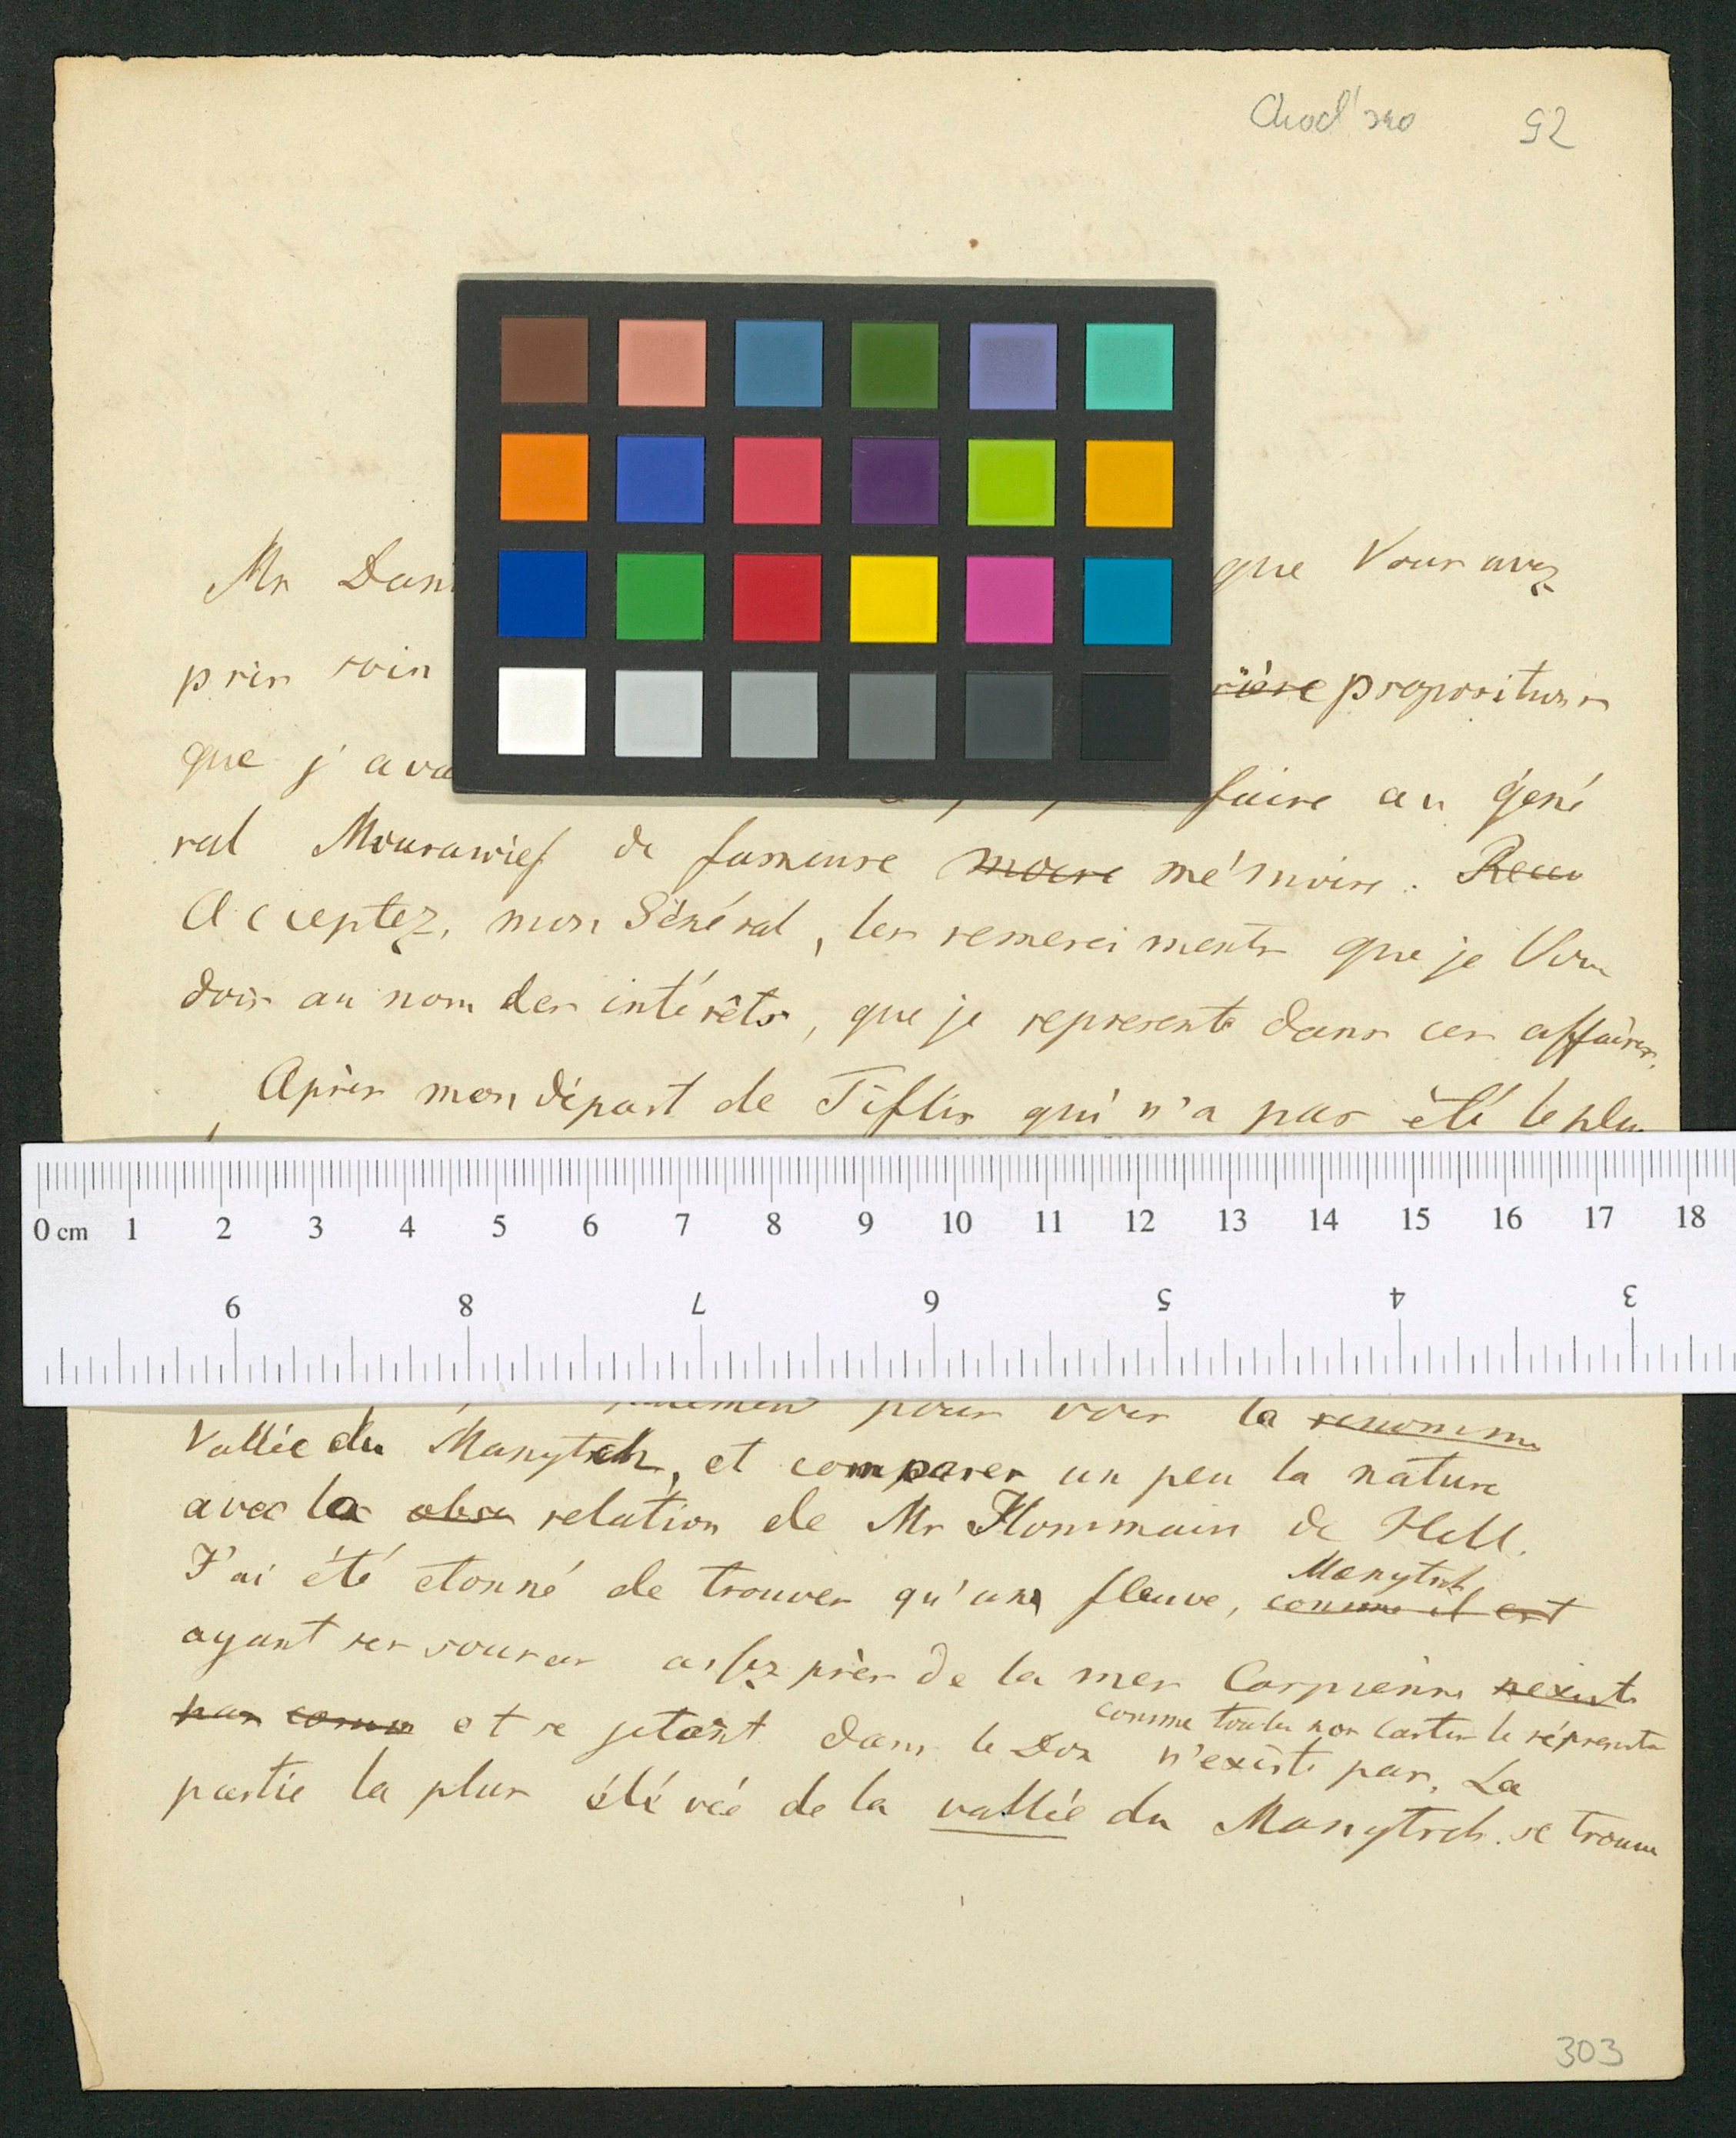 92
Mr Dan que Vous avez
pris soin rière propositions
que j'ava faire au géné
ral Mourawief de fameuse mémoire.
Acceptez, mon Général, les remerciments que je Vous
dois au nom des intérêts, que je represente dans ces affaires.
Après mon départ de Tiflis qui n'a pas été le plus
0 cm 1 2 3 4 5 6 7 8 9 10 11 12 13 14 15 16 17 18
9 8 7 6 5 4 3
pour voir la renommé
Vallée du Manytsch, et comparer un peu la nature
avec la relation de Mr Hommain de Hell.
J'ai été etonné de trouver qu'un fleuve, comme il est
Manytsch
ayant ses sources assez près de la mer Caspienne n'existe
pas comm et se jetant dans le Don n'existe pas. La
comme toutes nos cartes le réprésente
partie la plus élévée de la vallée du Manytsch se trouve
303